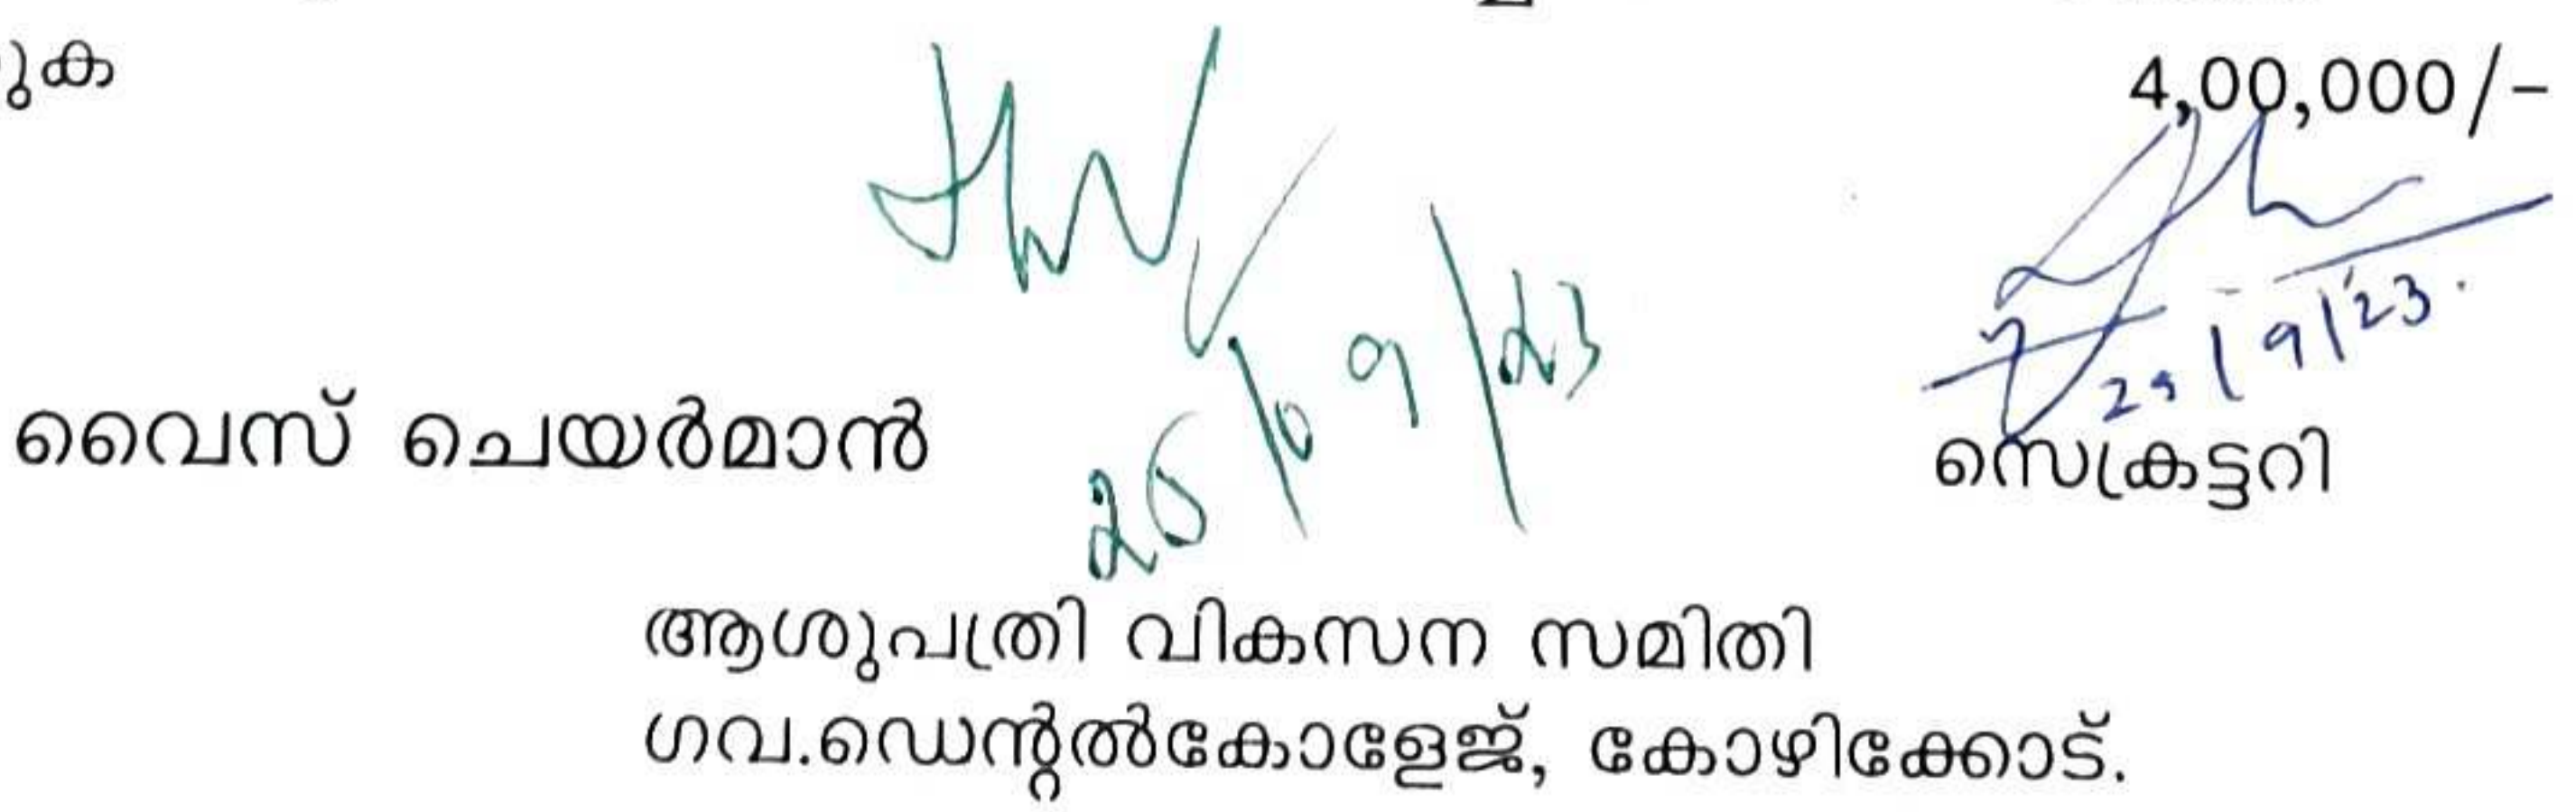 ുക 4,00,000/-
25/09/23
29/9/23.
വൈസ് ചെയർമാൻ സെക്രട്ടറി
ആശുപത്രി വികസന സമിതി
ഗവ.ഡെന്റൽകോളേജ്, കോഴിക്കോട്.